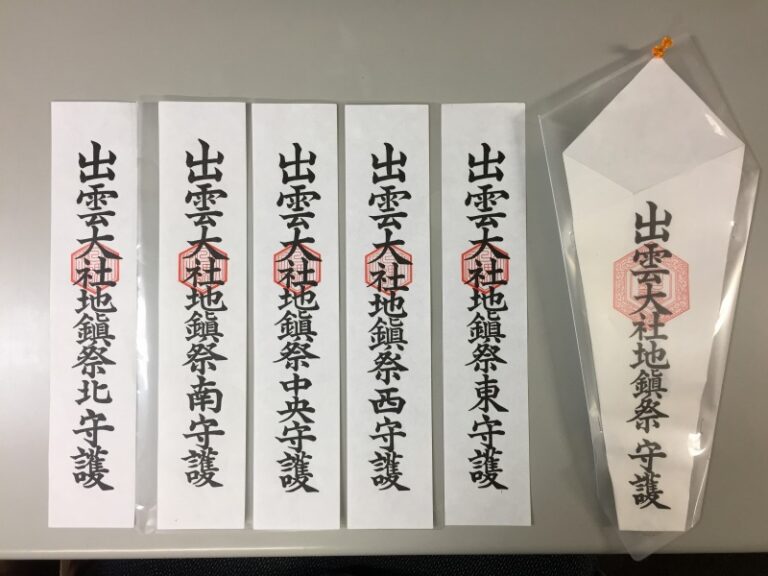 出雲大社地鎭祭 守護
出雲大社地鎭祭東守護
出雲大社地鎭祭西守護
出雲大社地鎭祭中央守護
出雲大社地鎭祭南守護
出雲大社地鎭祭北守護